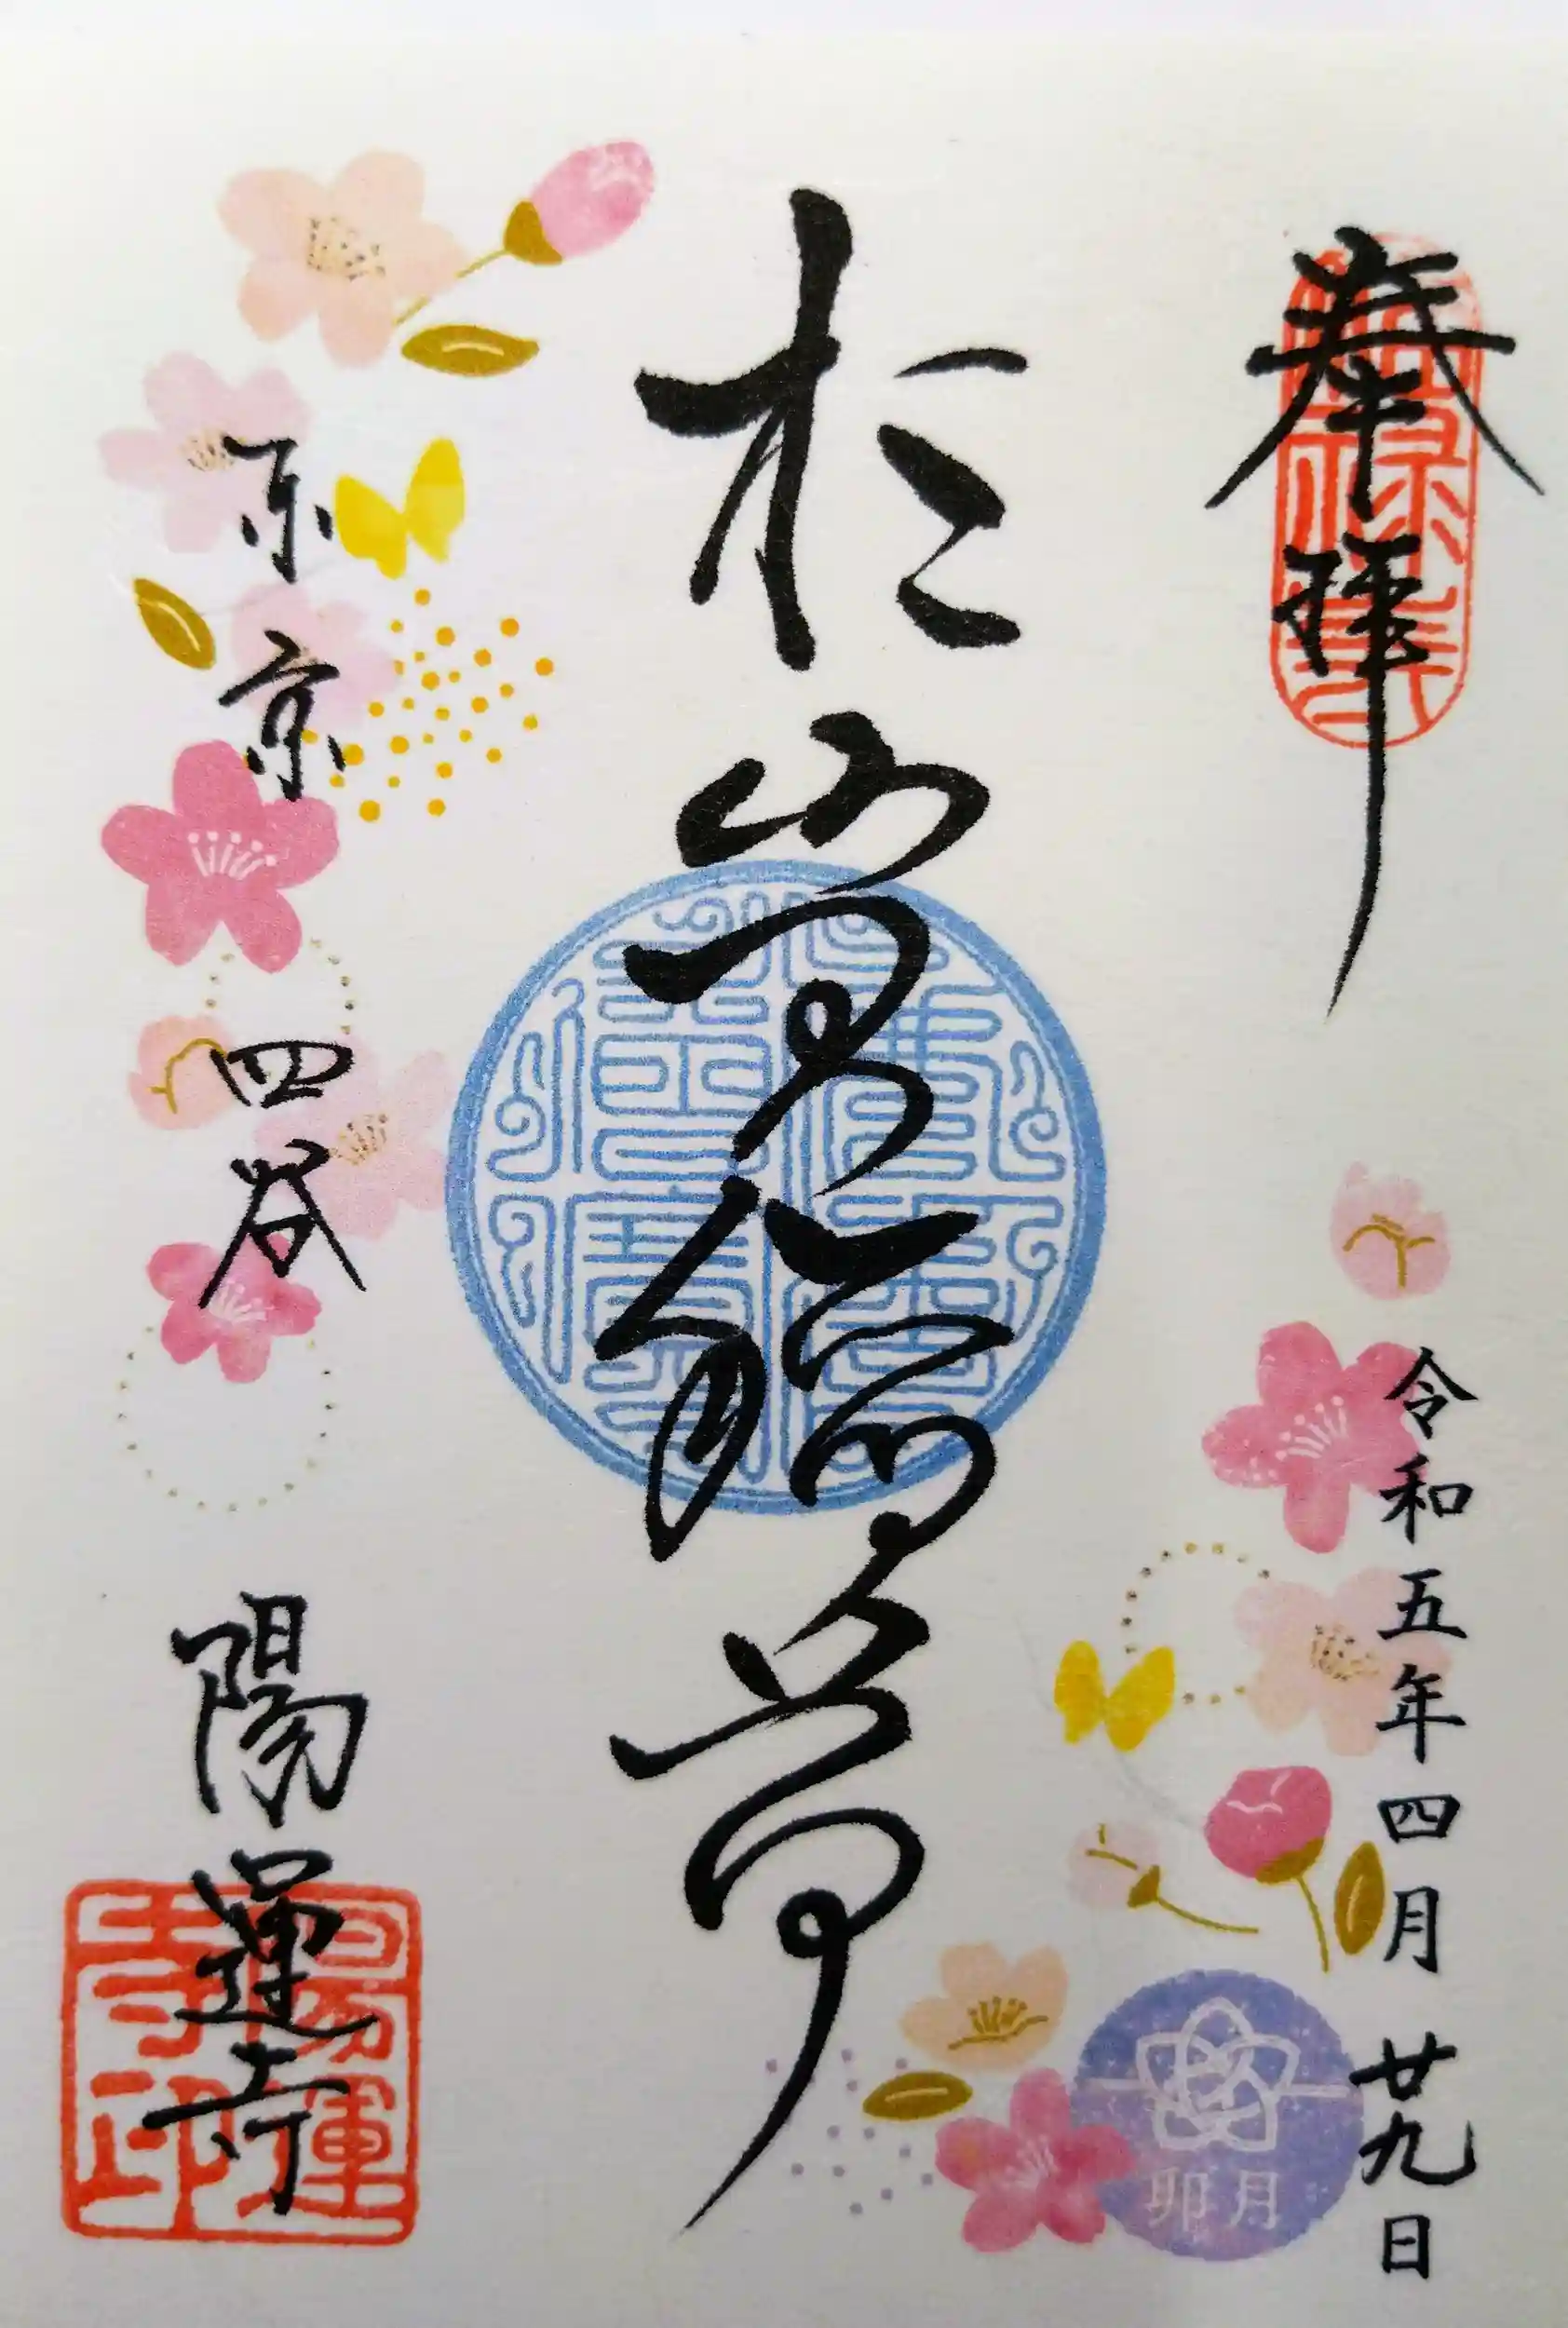 奉拝
令和五年四月 廿九日
卯月
於岩稲荷
东京 四谷 陽運寺
陽運寺印